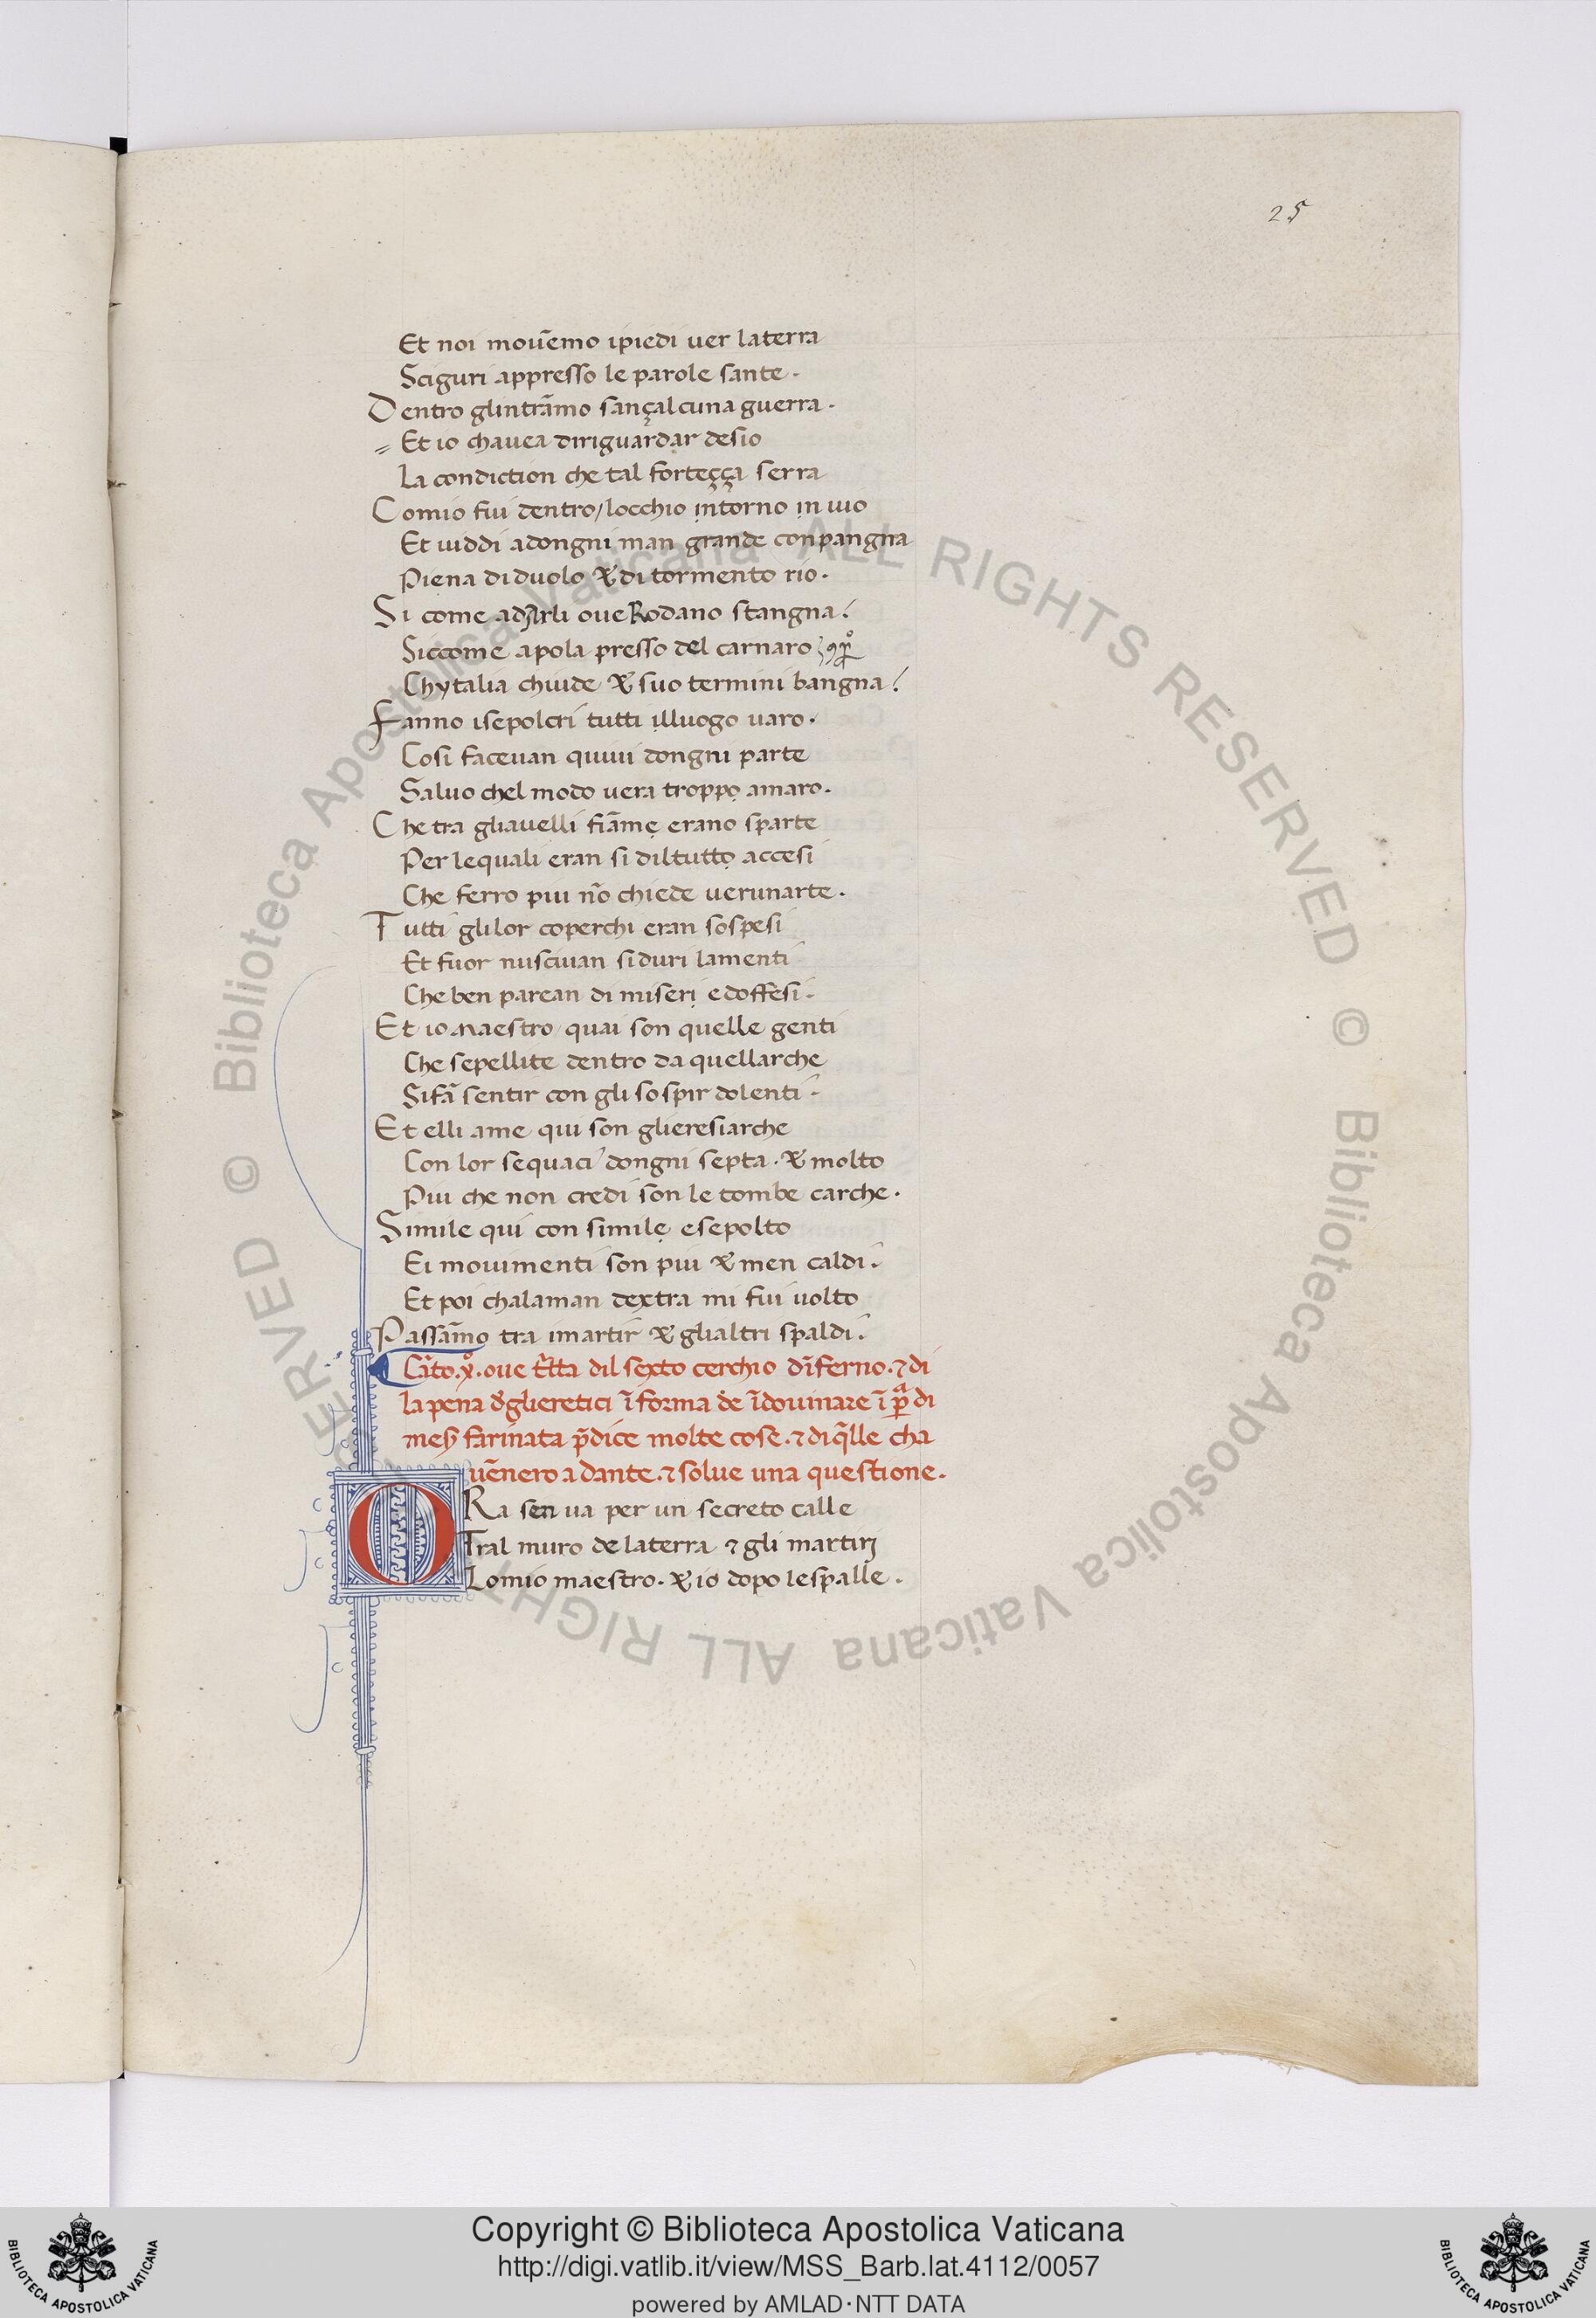 25
Et noi mouẽmo ipiedi uer laterra
Sciguri appresso le parole sante.
Dentro glintrãmo sançalcuna guerra.
Et io chauea diriguardar desio
La condiction che tal forteçça serra
Comio fui dentro/locchio intorno in uio
Et uiddi adongni man grande conpangna
Piena di duolo & di tormento rio.
Si come ad Arli oue Rodano stangna/.
Siccome apola presso del carnaro
Chytalia chiude & suo termini bangna/.
Fanno isepolcri tutti illuogo uaro.
Cosi faceuan quiui dongni parte
Saluo chel modo uera troppo amaro.
Che tra gliauelli fiãme erano sparte
Per lequali eran si diltutto accesi
Che ferro piu nõ chiede uerunarte.
Tutti glilor coperchi eran sospesi
Et fuor nusciuan siduri lamenti
Che ben parean di miseri edoffesi.
Et io maestro quai son quelle genti
Che sepellite dentro da quellarche
Sifã sentir con gli sospir dolenti.
Et elli ame qui son glieresiarche
Con lor sequaci dongni septa. & molto
Piu che non credi son le tombe carche.
Simile qui con simile esepolto
Ei mouimenti son piu & men caldi.
Et poi chalaman dextra mi fui uolto
Passãmo tra imartir & glialtri spaldi.
Cãto.x°.oue tr̃tta dil sexto cerchio dĩferno.⁊di
lapena d̃glieretici ĩ forma de ĩdouinare ĩ p̱ª di
mes̃ farinata p̃dice molte cose.⁊diq̃lle cha
uẽnero adante.⁊solue una questione.
ORa sen ua per un secreto calle
Tral muro de laterra ⁊ gli martirj
Lomio maestro. & io dopo lespalle.
© Biblioteca Apostolica Vaticana ALL RIGHTS RESERVED © Biblioteca Apostolica Vaticana ALL RIGHTS RESERVED
Copyright © Biblioteca Apostolica Vaticana
http://digi.vatlib.it/view/MSS_Barb.lat.4112/0057
powered by AMLAD·NTT DATA
BIBLIOTECA APOSTOLICA VATICANA
BIBLIOTECA APOSTOLICA VATICANA